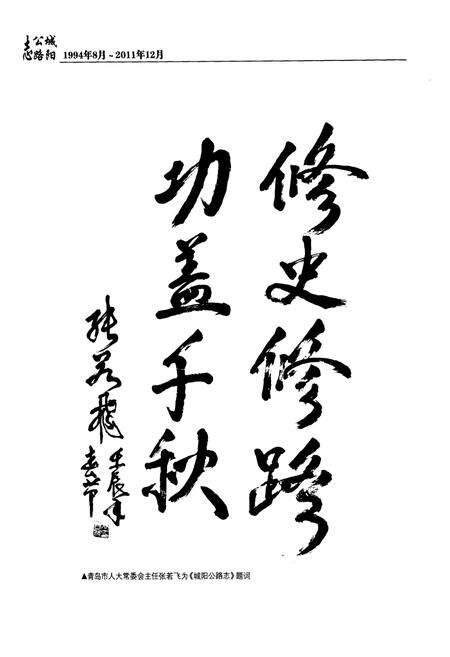 城阳公路志 1994年8月~2011年12月
修史修路
功盖千秋
张若飞
壬辰年
春节
▲青岛市人大常委会主任张若飞为《城阳公路志》题词